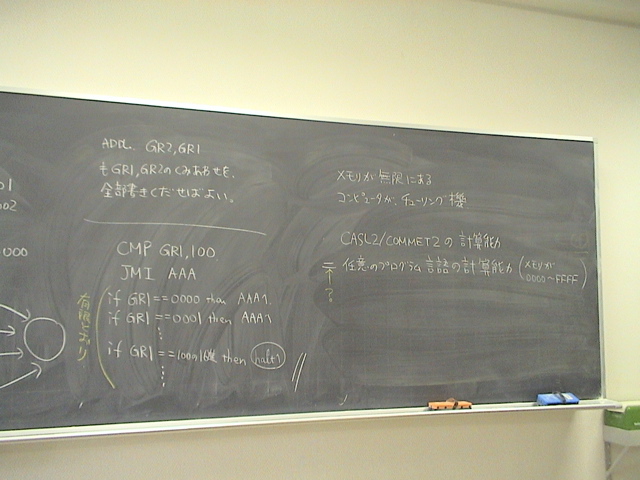 01
002
000
ADDL GR2,GR1
もGR1,GR2のくみあわせを、
全部書きくだせばよい。
CMP GR1,100
JMI AAA
有限とおり
if GR1==0000 then AAAへ
if GR1==0001 then AAAへ
⋮
if GR1==100の16進 then haltへ
⋮
メモリが無限にある
コンピュータが、チューリング機
CASL2/COMMET2の計算能力
= 任意のプログラム言語の計算能力 (メモリが 0000~FFFF)
↑
?